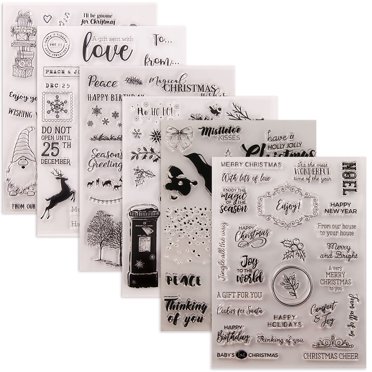 I'll be gnome
for Christmas
Enjoy you
WISHING
FROM OUR
A gift sent with
love
To...
from...
PEACE & JO
DEC 25
DO NOT
OPEN UNTIL
25TH
DECEMBER
Peace
HAPPY BIRTHDAY
Season's
Greetings
Magical
CHRISTMAS
Wishes
Ho Ho Ho
Mistletoe
KISSES
have a
HOLLY JOLLY
Christmas
PEACE
Thinking
of you
MERRY CHRISTMAS
With lots of love
It's the most
WONDERFUL
time of the year
NOEL
ENJOY THE
magic
OF THE
season
Enjoy!
HAPPY
NEW YEAR
From our house
to your house
Jingle all the way
HAPPY
Christmas
JOY
TO THE
WORLD
Merry
and Bright
A very
MERRY
CHRISTMAS
to you
A GIFT FOR YOU
Cookies for Santa
HAPPY
HOLIDAYS
Comfort
& Joy
HAPPY
Birthday
Thinking of you
BABY'S 1st CHRISTMAS
CHRISTMAS CHEER